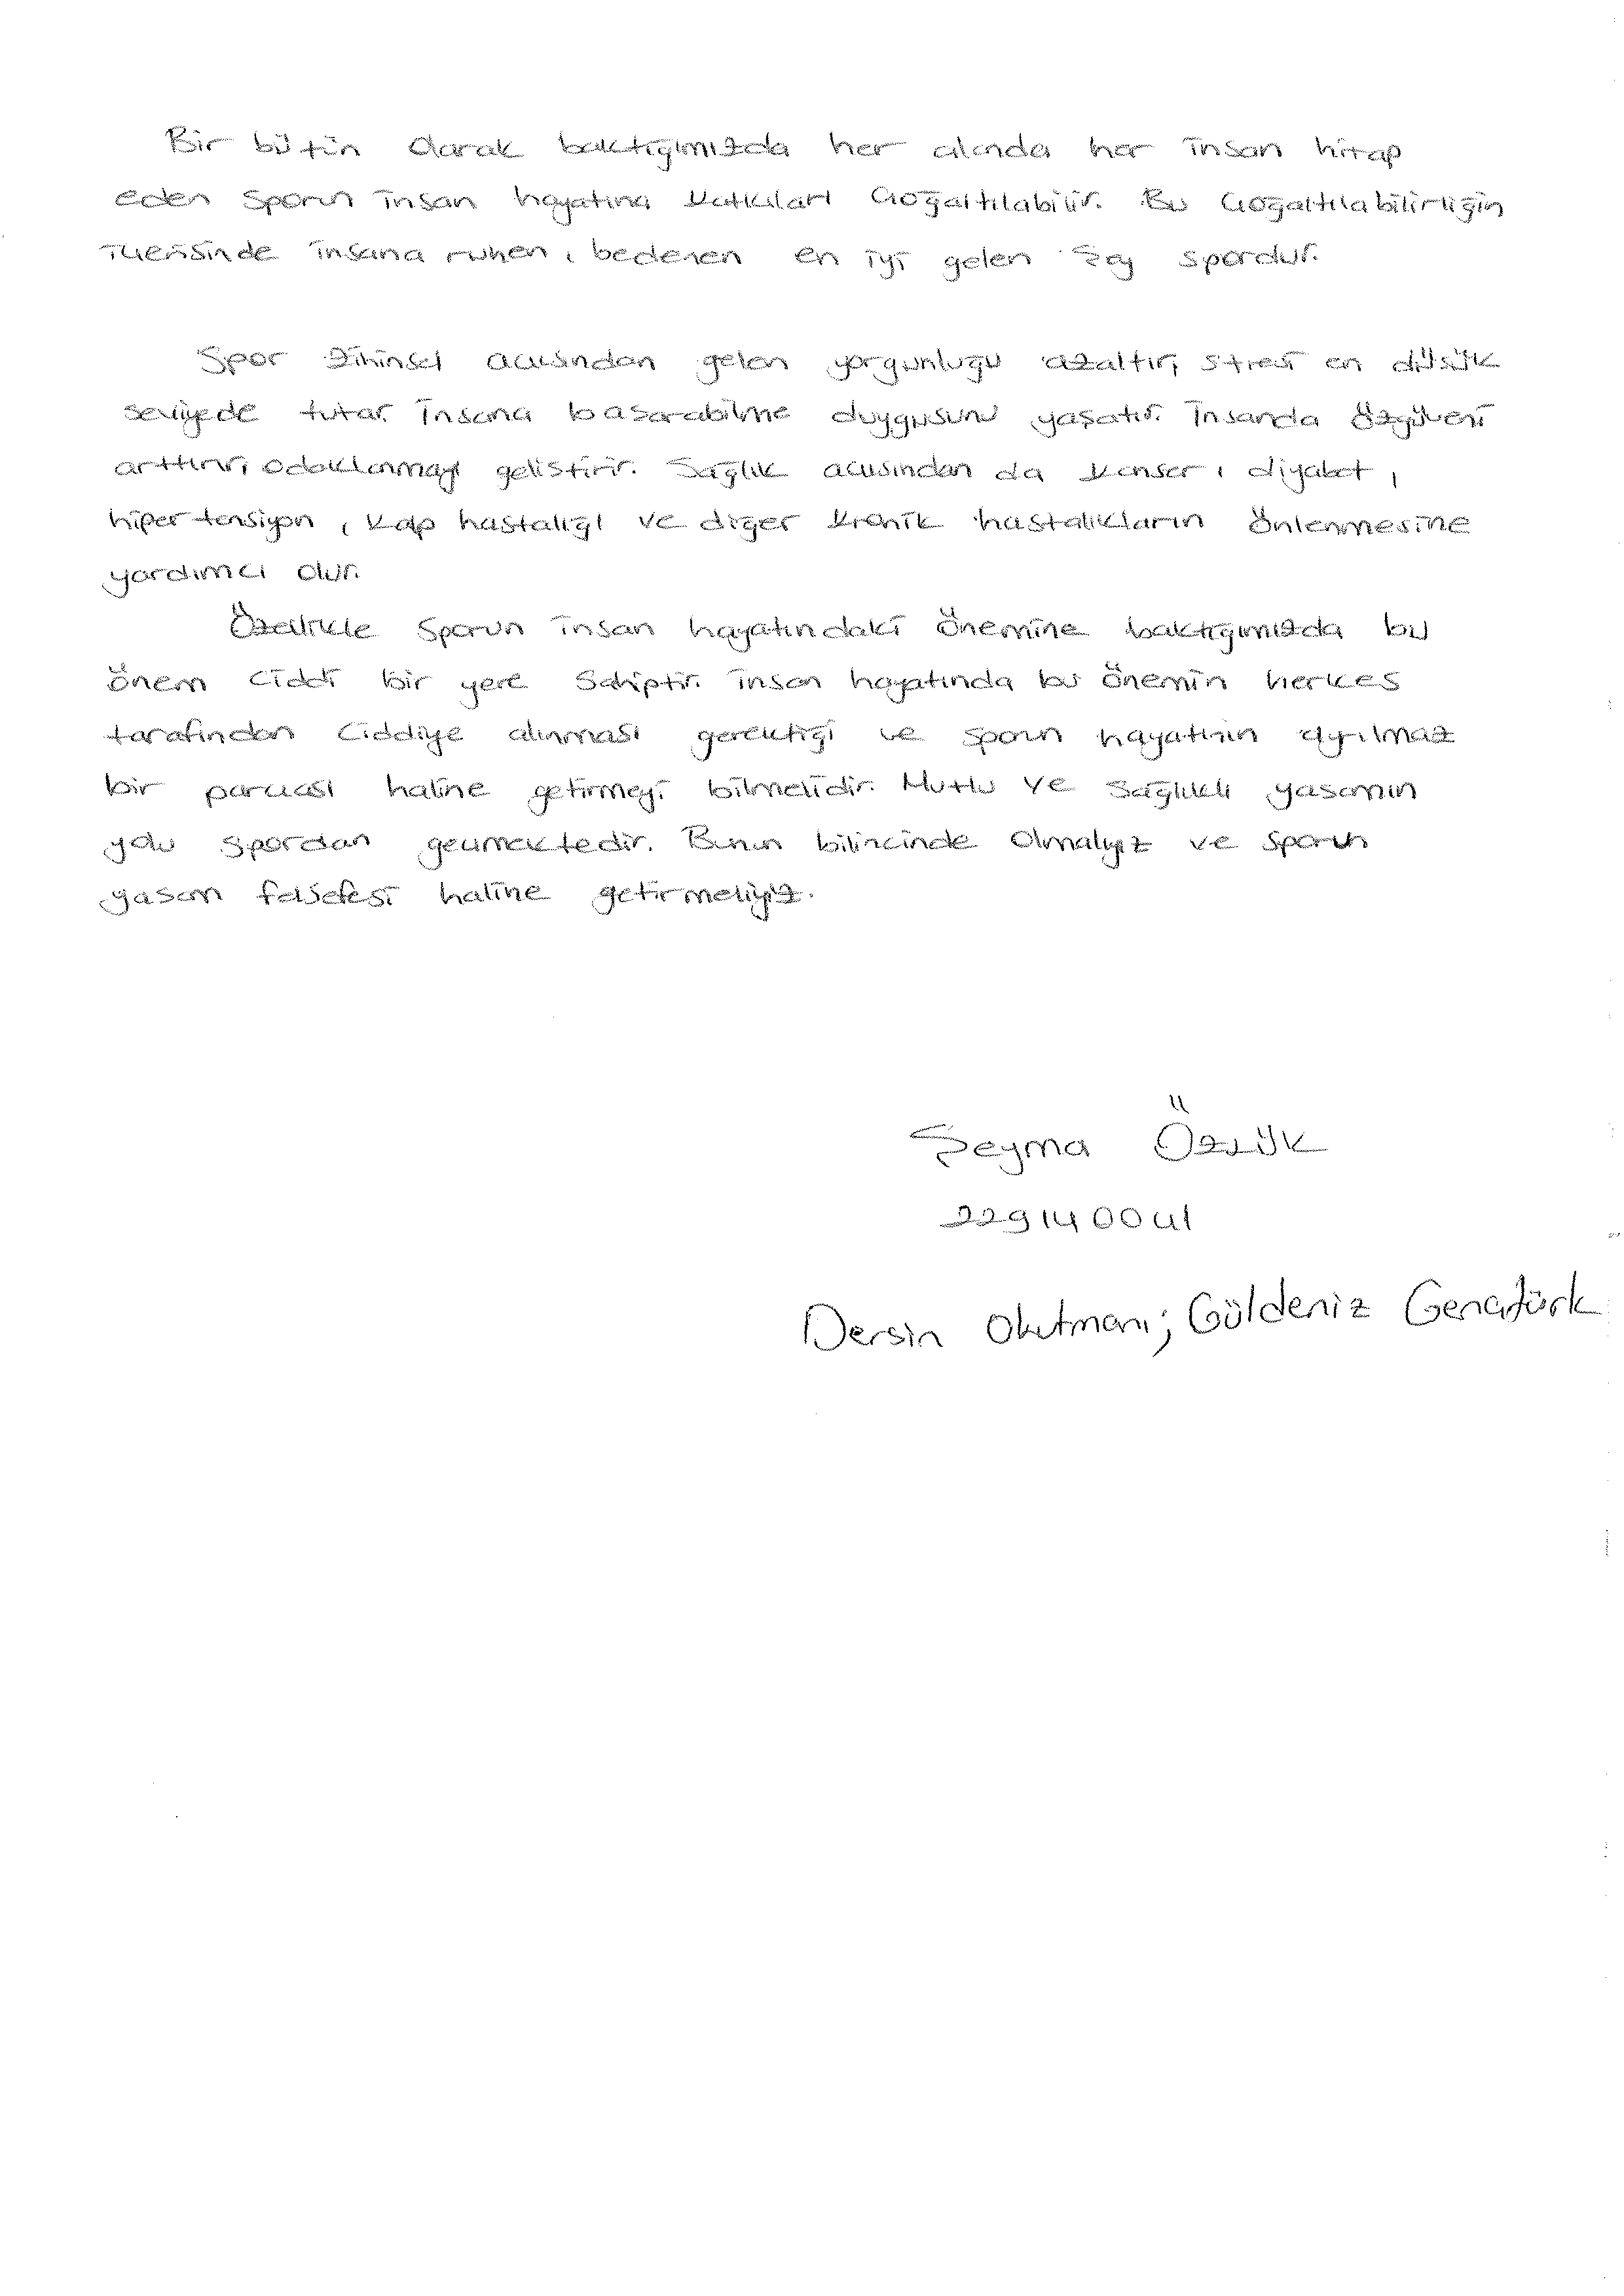 Bir bütün olarak baktığımızda her alanda her insan hitap
eden sporun insan hayatına katkıları çoğaltılabilir. Bu çoğaltılabilirliğin
içerisinde insana ruhen, bedenen en iyi gelen şey spordur.
Spor zihinsel açısından gelen yorgunluğu azaltır, stresi en düşük
seviyede tutar. İnsana başarabilme duygusunu yaşatır. İnsanda özgüveni
arttırır, odaklanmayı geliştirir. Sağlık açısından da kanser, diyabet,
hipertansiyon, kalp hastalığı ve diğer kronik hastalıkların önlenmesine
yardımcı olur.
Özellikle sporun insan hayatındaki önemine baktığımızda bu
önem ciddi bir yere sahiptir. insan hayatında bu önemin herkes
tarafından ciddiye alınması gerektiği ve sporun hayatının ayrılmaz
bir parçası haline getirmeyi bilmelidir. Mutlu ve sağlıklı yaşamın
yolu spordan geçmektedir. Bunun bilincinde olmalıyız ve sporun
yaşam felsefesi haline getirmeliyiz.
Şeyma Özlük
229140041
Dersin Okutmanı; Güldeniz Gençtürk